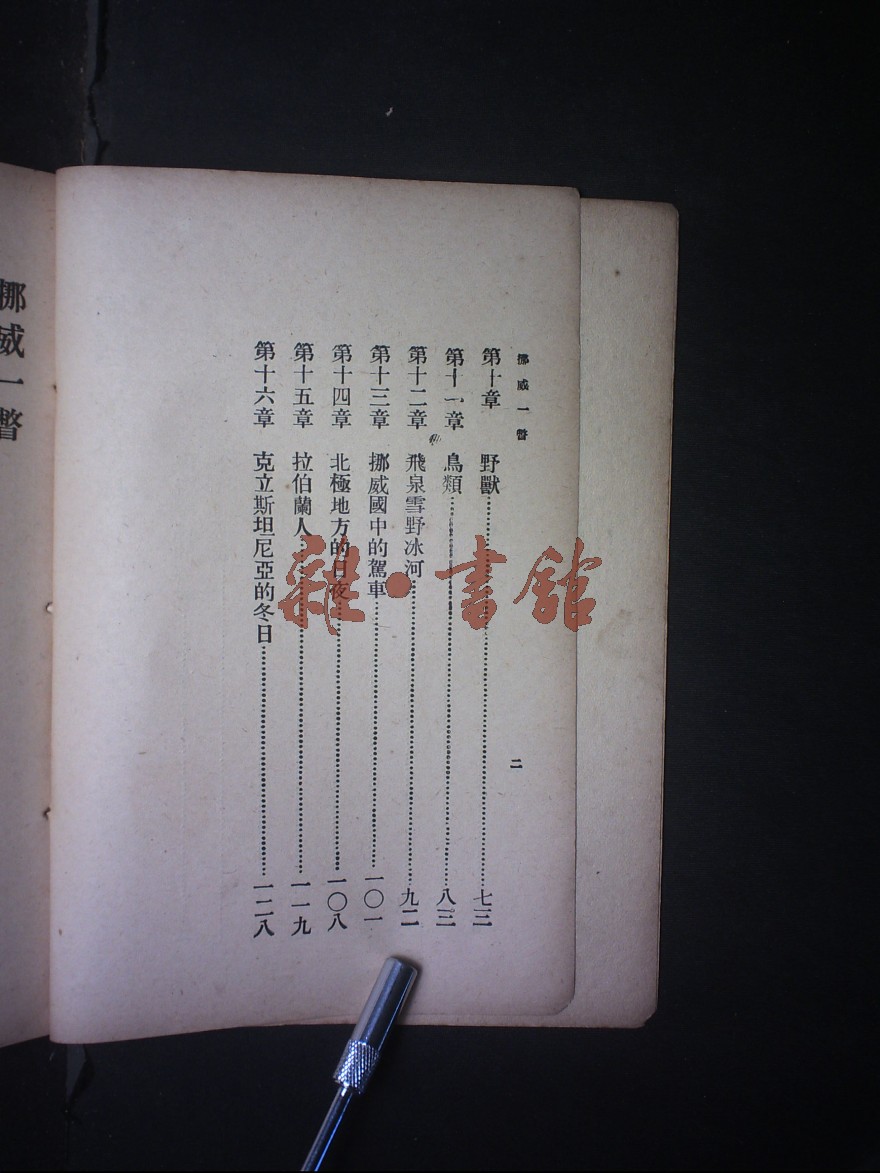 挪威一瞥
二
第十章 野獸 七三
第十一章 鳥類 八三
第十二章 飛泉雪野冰河 九二
第十三章 挪威國中的駕車 一〇一
第十四章 北極地方的日夜 一〇八
第十五章 拉伯蘭人 一一九
第十六章 克立斯坦尼亞的冬日 一二八
挪威一瞥
雜·書館